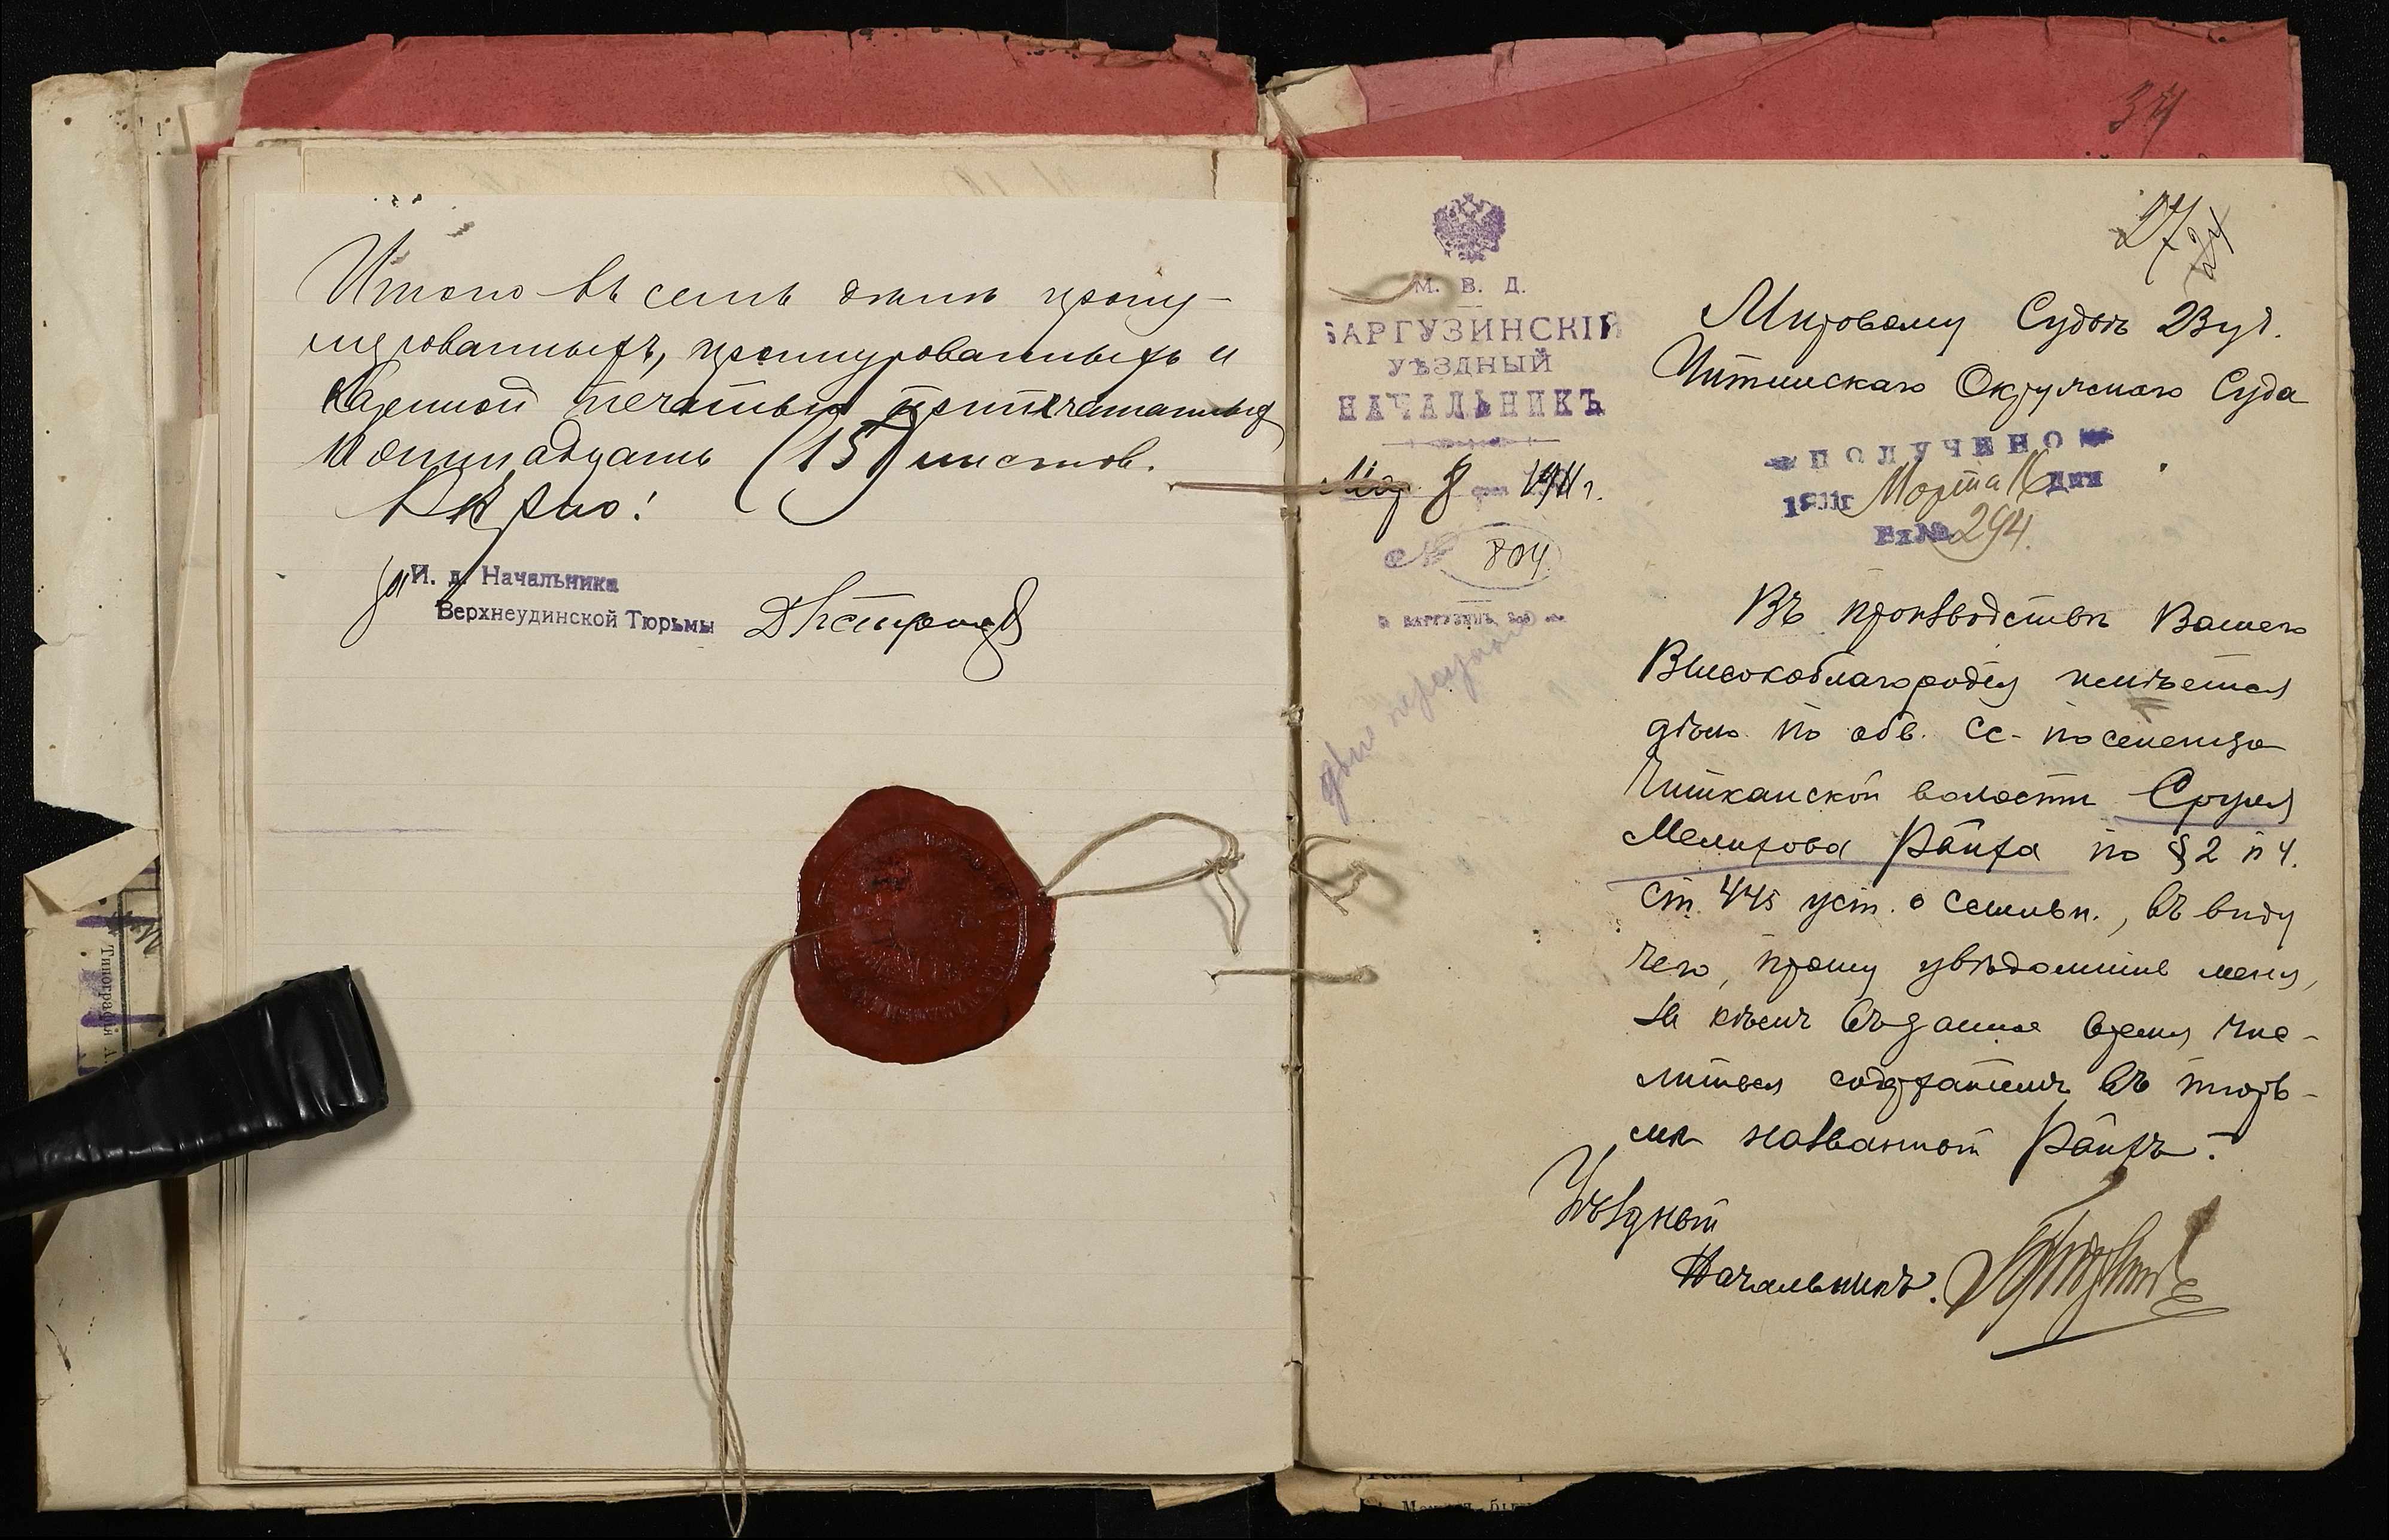 Итого въ семъ дѣлѣ прону-
мерованныхъ, прошнурованныхъ и
казенной печатью припечатанныхъ
Пятнадцать (15) листовъ.
Вѣрно!
И. д. Начальника
Верхнеудинской Тюрьмы
34
27
24
М. В. Д.
БАРГУЗИНСКІЙ
УѢЗДНЫЙ
НАЧАЛЬНИКЪ
Мар. 8 дня 1911 г.
№ 804.
Г. БАРГУЗИНЪ, Заб. обл.
Мировому Судьѣ 2 Уч.
Читинскаго Окружнаго Суда
ПОЛУЧЕНО
1911 г Марта 16 дня
Вх № 294.
Въ производствѣ Вашего
Высокоблагородія имѣется
дѣло по обв. сс-поселенца
Читканской волости
Мелихова Райха по § 2 п 4.
ст. 445 уст. о ссыльн., въ виду
чего, прошу увѣдомить меня,
за кѣмъ въ данное время чис-
лится содержаніемъ въ тюрь-
мѣ названной Райхъ.
Уѣздный
Начальникъ.
Типографія А.